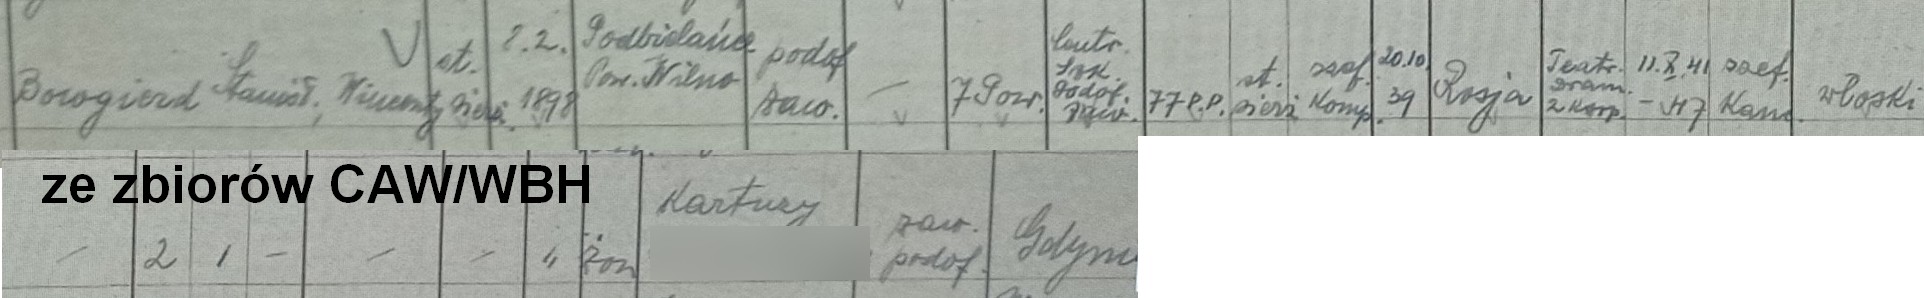 Borogierd Stanisł. Wincenty st. sierż. 2.2. 1898 Podbielańce Pow. Wilno podof zaw. — 7 Pow. Centr. Szk. Podof. Piech. 77 P.P. st. sierż szef. Komp. 20.10. 39 Rosja Teatr. Dram. 2 Korp. 11.X.41 – VI 47 szef. Kanc. włoski
ze zbiorów CAW/WBH
— 2 1 — — — 4 żon Kartuzy zaw. podof. Gdynia